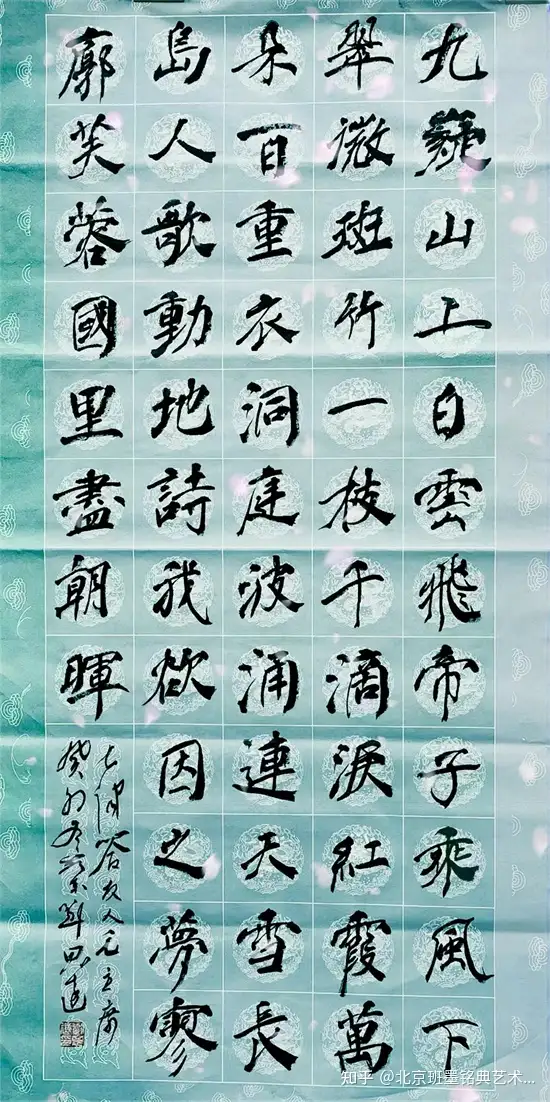 九嶷山上白雲飛帝子乘風下
翠微斑竹一枝千滴淚紅霞萬
朵百重衣洞庭波涌連天雪長
島人歌動地詩我欲因之夢寥
廓芙蓉國里盡朝暉
七律答友人毛主席
癸卯冬思遠
知乎 @北京班墨铭典艺术...